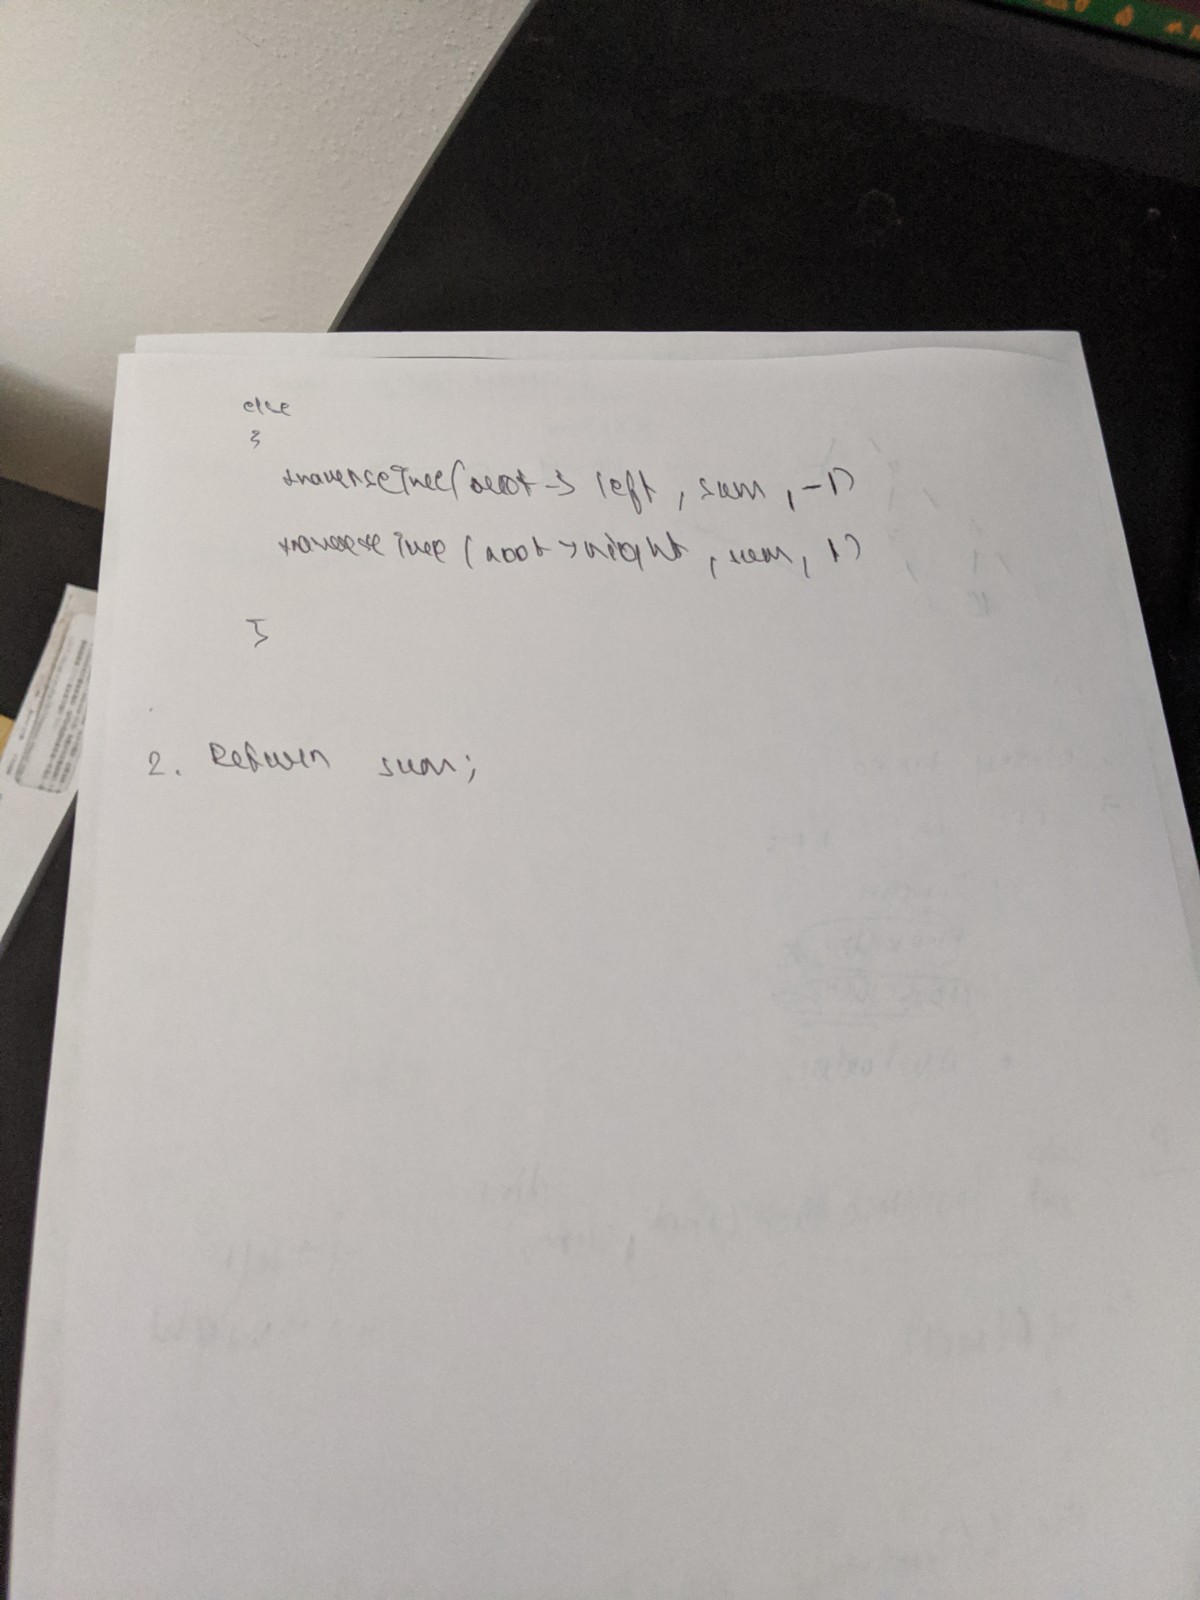 else
{
traverseTree(root -> left, sum, -1)
traverse Tree (root -> right, sum, 1)
}
2. Return sum;